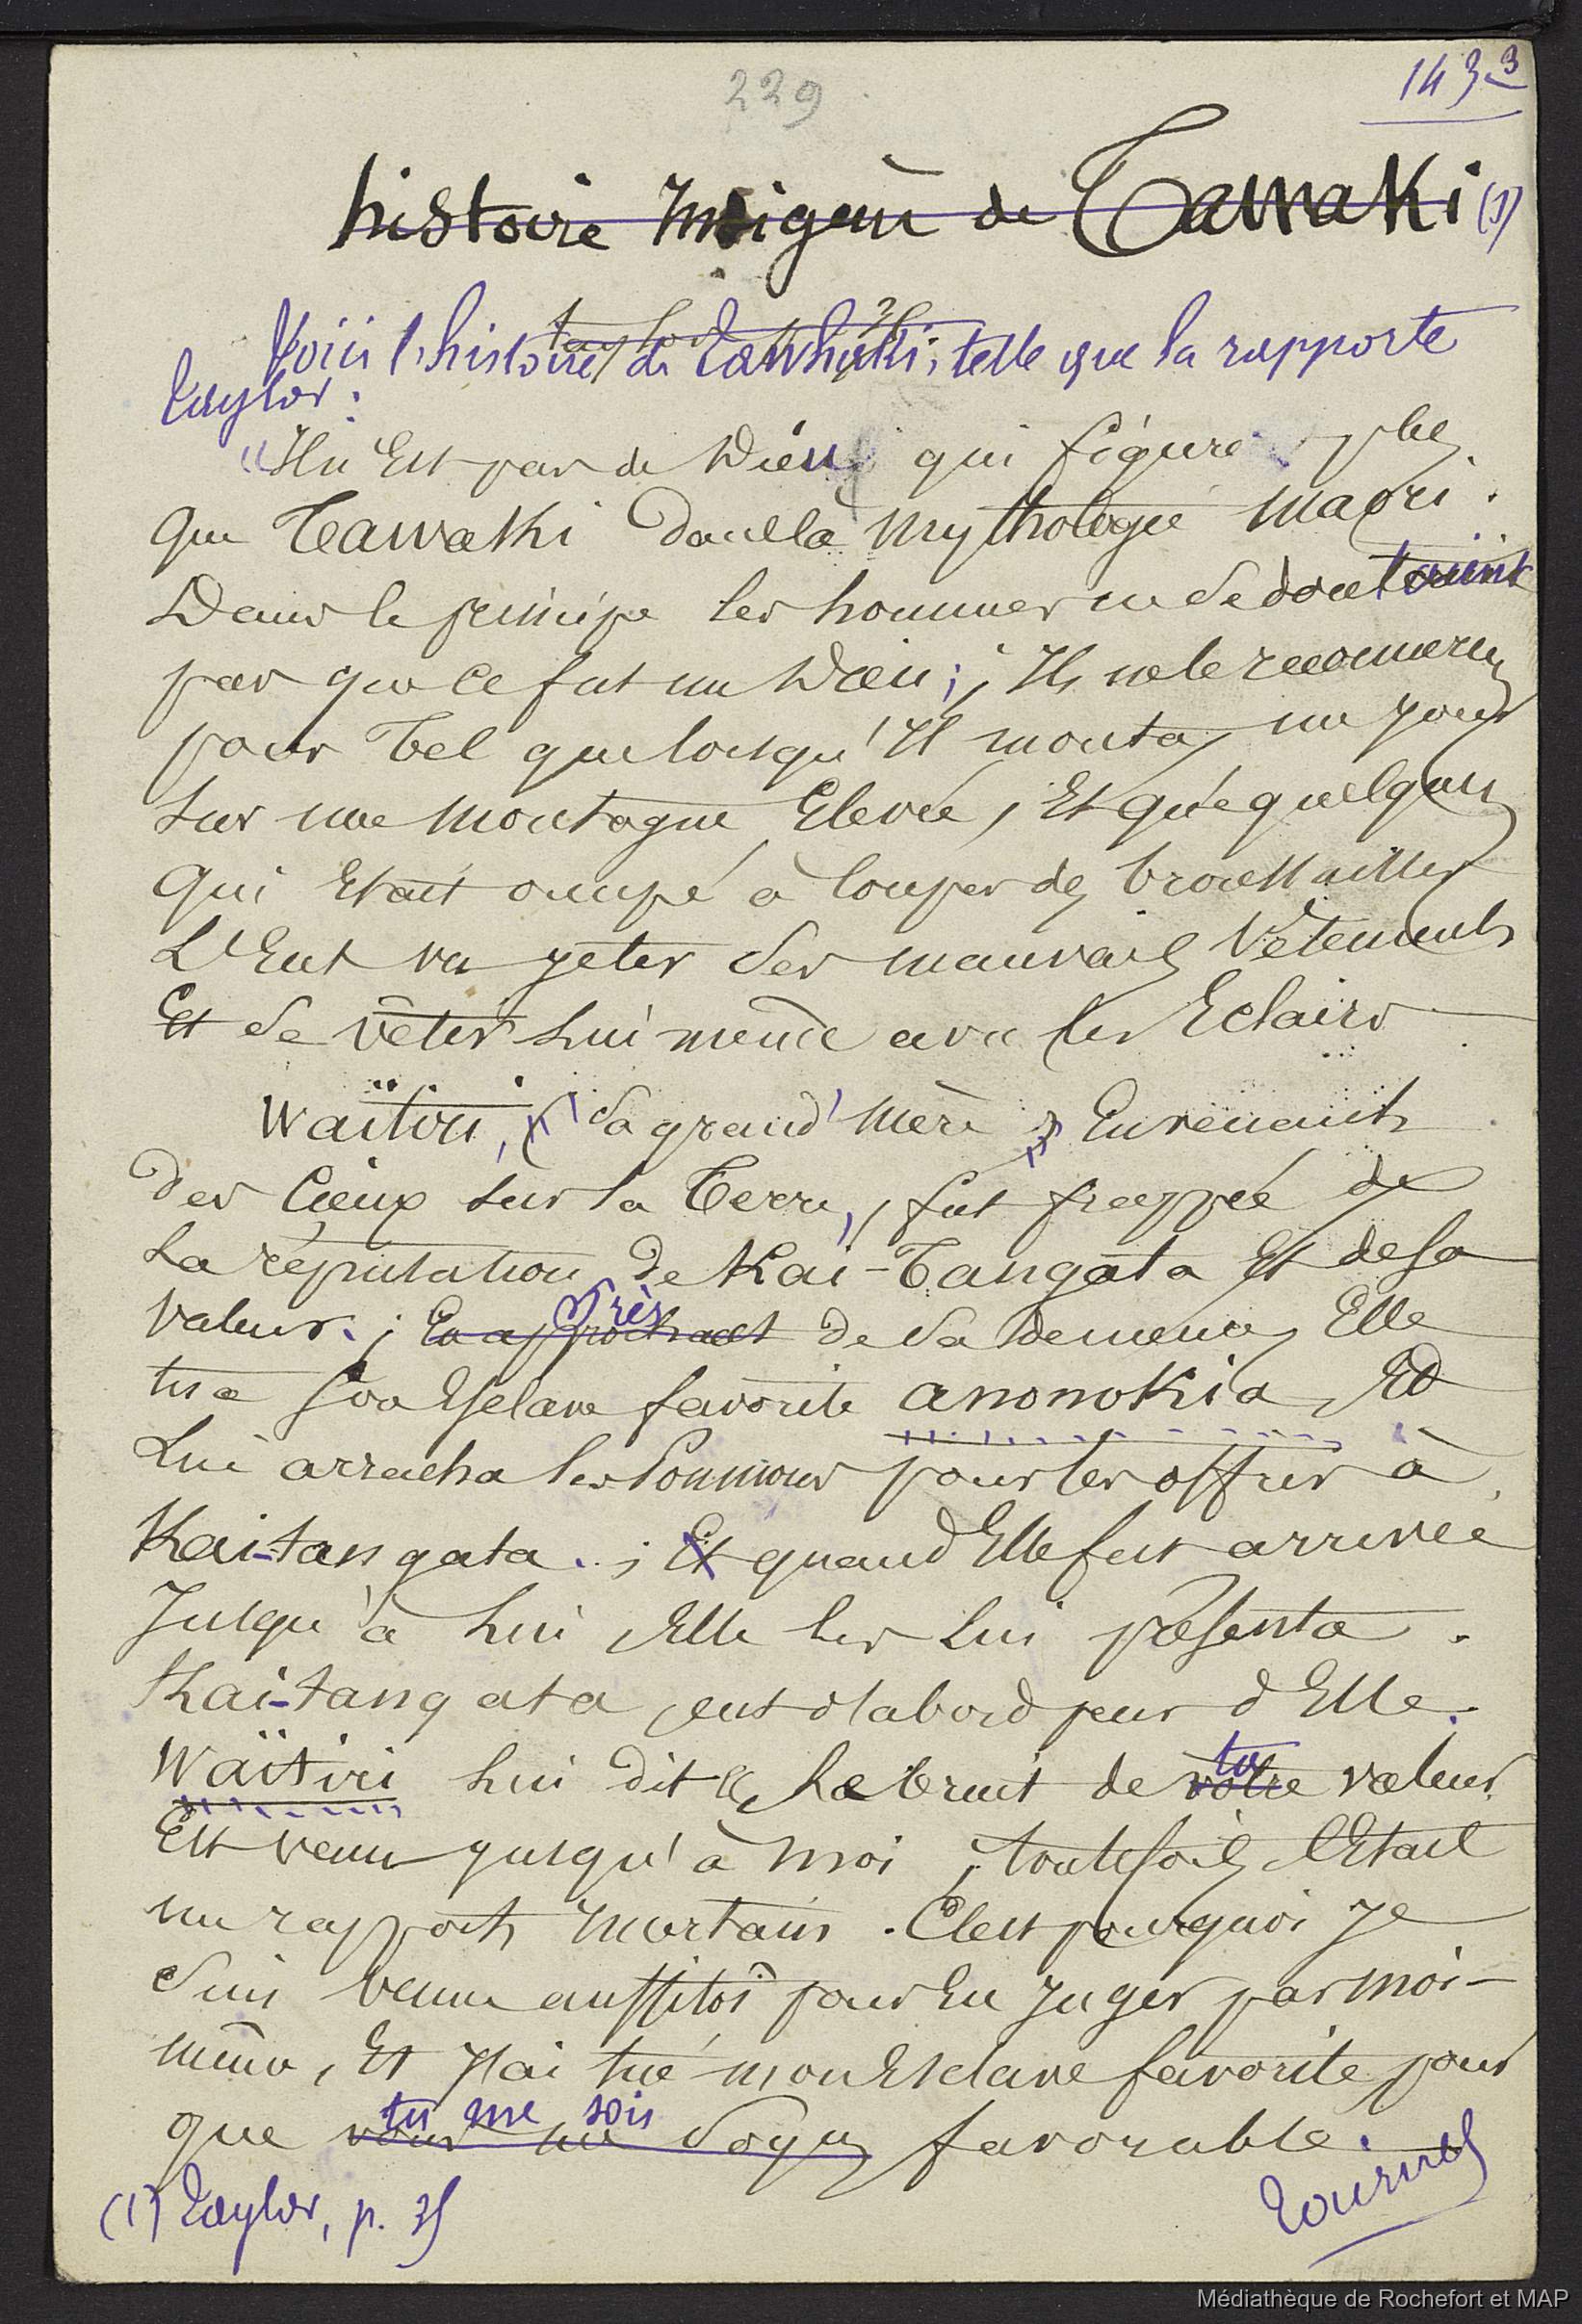 229
143 3
histoire indigène de Tawaki (1)
Taylor 35
Voici l'histoire de Tawhaki, telle que la rapporte
Taylor :
"Il n'est pas de Dieu qui figure plus
que Tawaki dans la mythologie maori.
Dans le principe les hommes ne se doutaient
pas que ce fut un Dieu ; Ils ne le reconnurent
pour tel que lorsqu'Il monta, un jour
sur une montagne Elevée, Et que quelqu'un
qui Etait occupé à couper des broussailles
L'Eut vu jeter ses mauvais vêtements
Et se vêtir lui même avec les Eclairs
Waïtiri, sa grand'mère, En venant
des Cieux sur la Terre, fut frappée de
la réputation de Kai-Tangata Et de sa
valeur. ; En approchant Près de sa demeure, Elle
tua son Esclave favorite anonokia, Et
Lui arracha les Poumons pour les offrir à
Kai-tangata. ; Et quand Elle fut arrivée
Jusqu'à Lui, Elle les Lui présenta.
Kai-tangata eut d'abord peur d'Elle.
Waïtiri lui dit « Le bruit de votre ta valeur
Est venu jusqu'à moi ; toutefois c'Etait
un rapport incertain. C'est pourquoi Je
suis venue aussitôt pour En juger par moi-
même, Et J'ai tué mon Esclave favorite pour
que vous me soyez tu me sois favorable.
(1) Taylor, p. 35
Tournez
Médiathèque de Rochefort et MAP